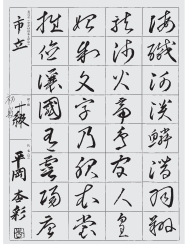 海鹹河淡鱗潜羽翔
龍師火帝鳥官人皇
始制文字乃服衣裳
推位讓國有虞陶唐
市立
平岡杏彩